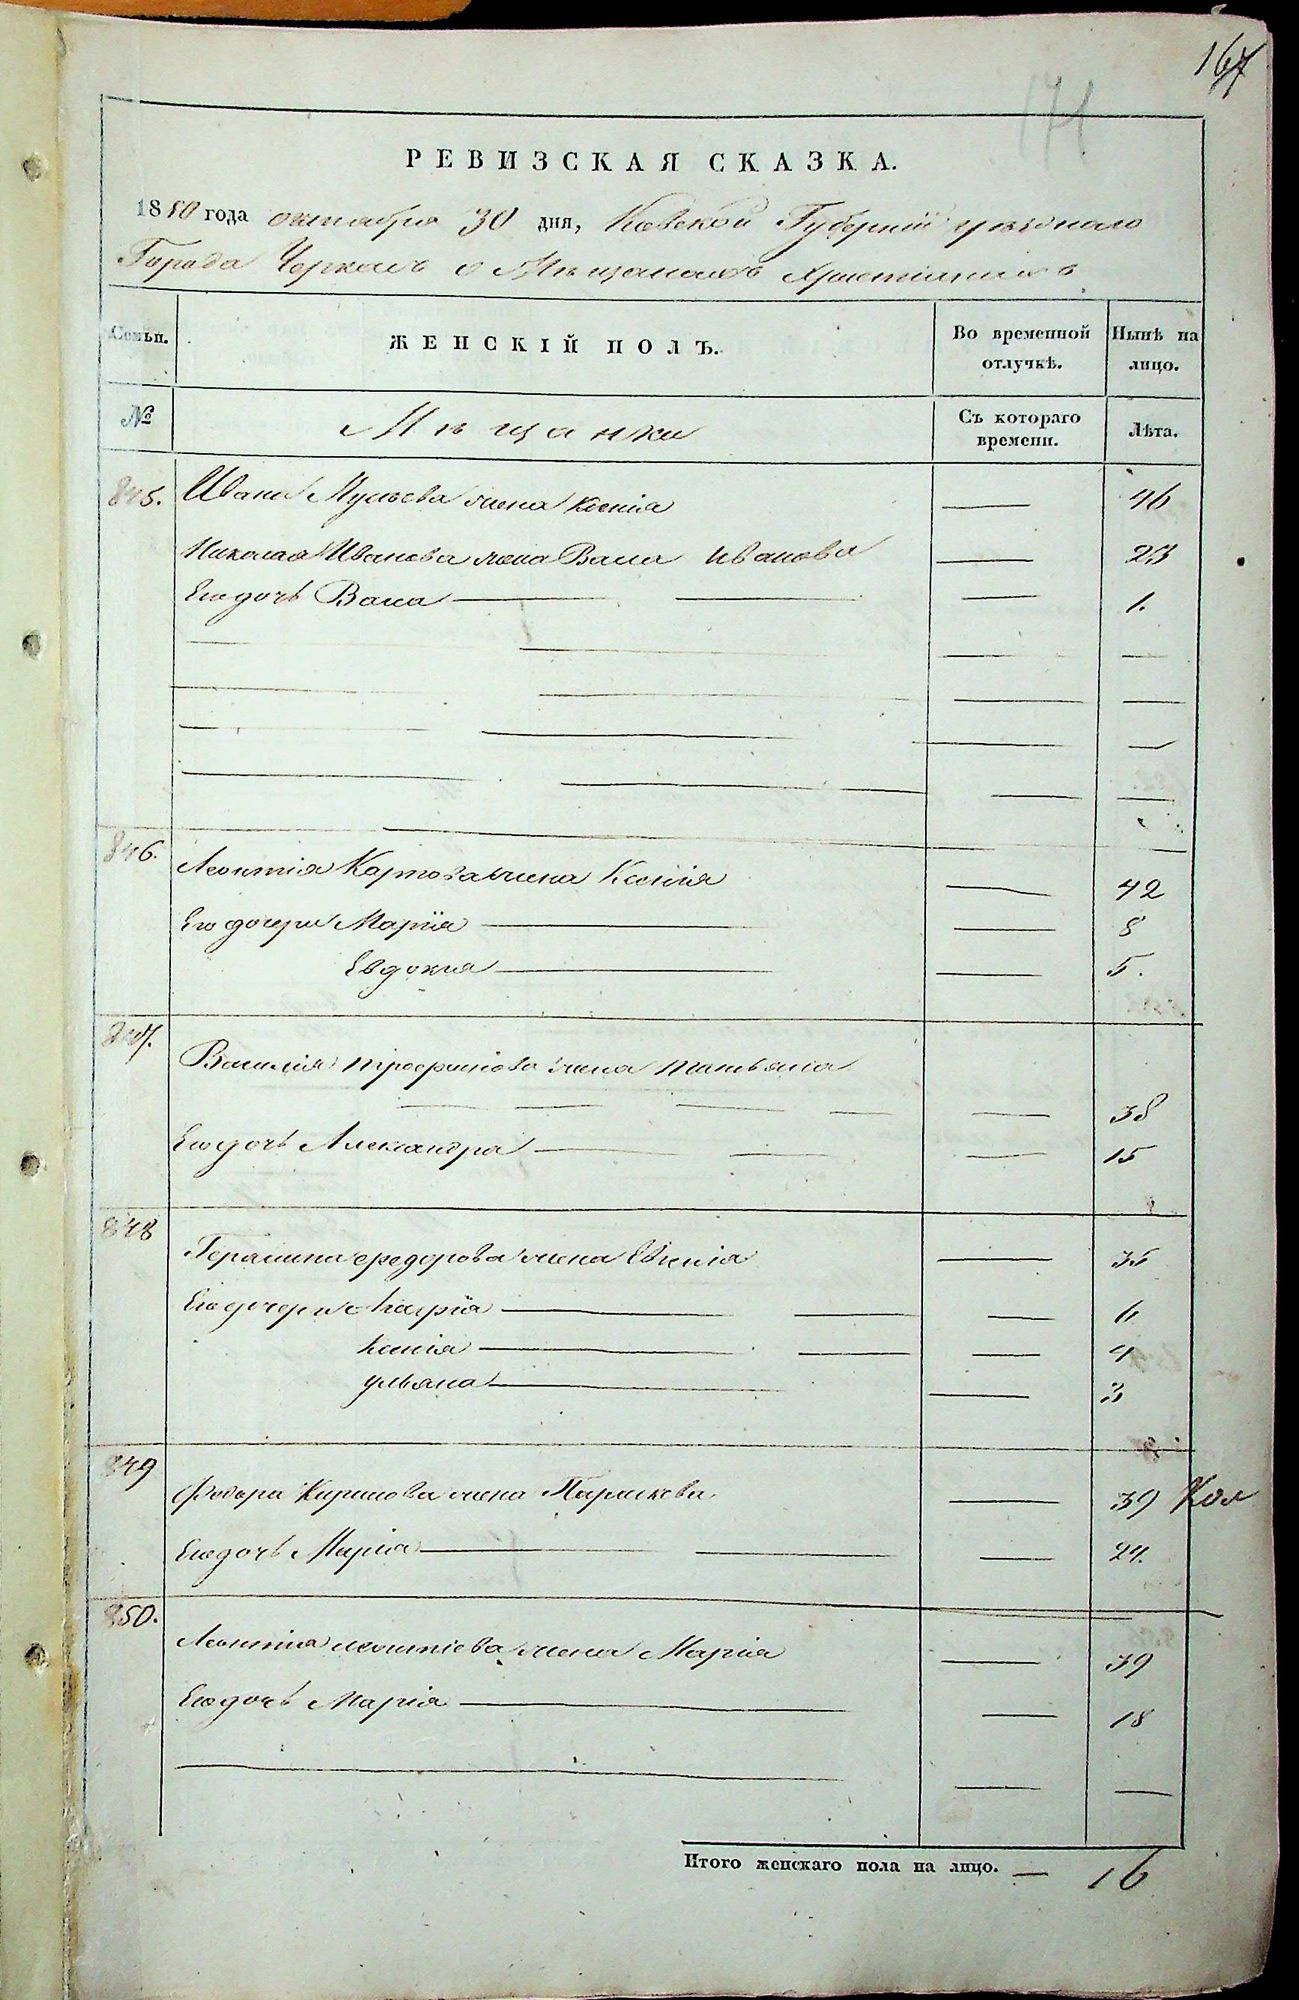 167
171
РЕВИЗСКАЯ СКАЗКА.
1850 года октября 30 дня, Киевской Губернии уезднаго
Города Черкасъ о Мѣщанахъ Христианахъ
Семьи. ЖЕНСКІЙ ПОЛЪ. Во временной отлучкѣ. Нынѣ на лицо.
№ Мѣщанки Съ котораго времени. Лѣта.
845. Ивана жена Ксенія — 46
Николая Иванова жена Васа Иванова — 23
Его дочь Васа — 1.
846. Леонтія Карпова жена Ксенія — 42
Его дочери Марія — 8
Евдокия — 5.
847. Василія Трофимова жена Татьяна
— 38
Его дочь Александра — 15
848 Герасима Федорова жена Евгенія — 35
Его дочери — 6
Ксенія — 4
Ульяна — 3
849 Федора жена Параскева — 39
Его дочь Марія — 24.
850. Леонтія Леонтіева жена Марія — 39
Его дочь Марія — 18
Итого женскаго пола на лицо. — 16